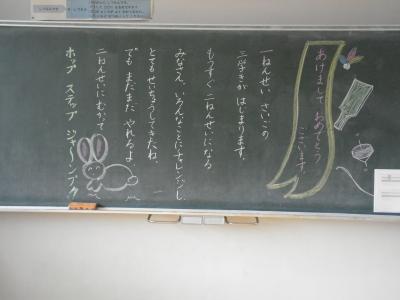 あけまして おめでとう
ございます。
一ねんせい さいごの
三学きが はじまります。
もうすぐ 二ねんせいになる
みなさん。いろんなことにチャレンジし、
とても せいちょうしてきたね。
でも まだまだ やれるよ。
二ねんせいに むかって
ホップ ステップ ジャ〜ンプ